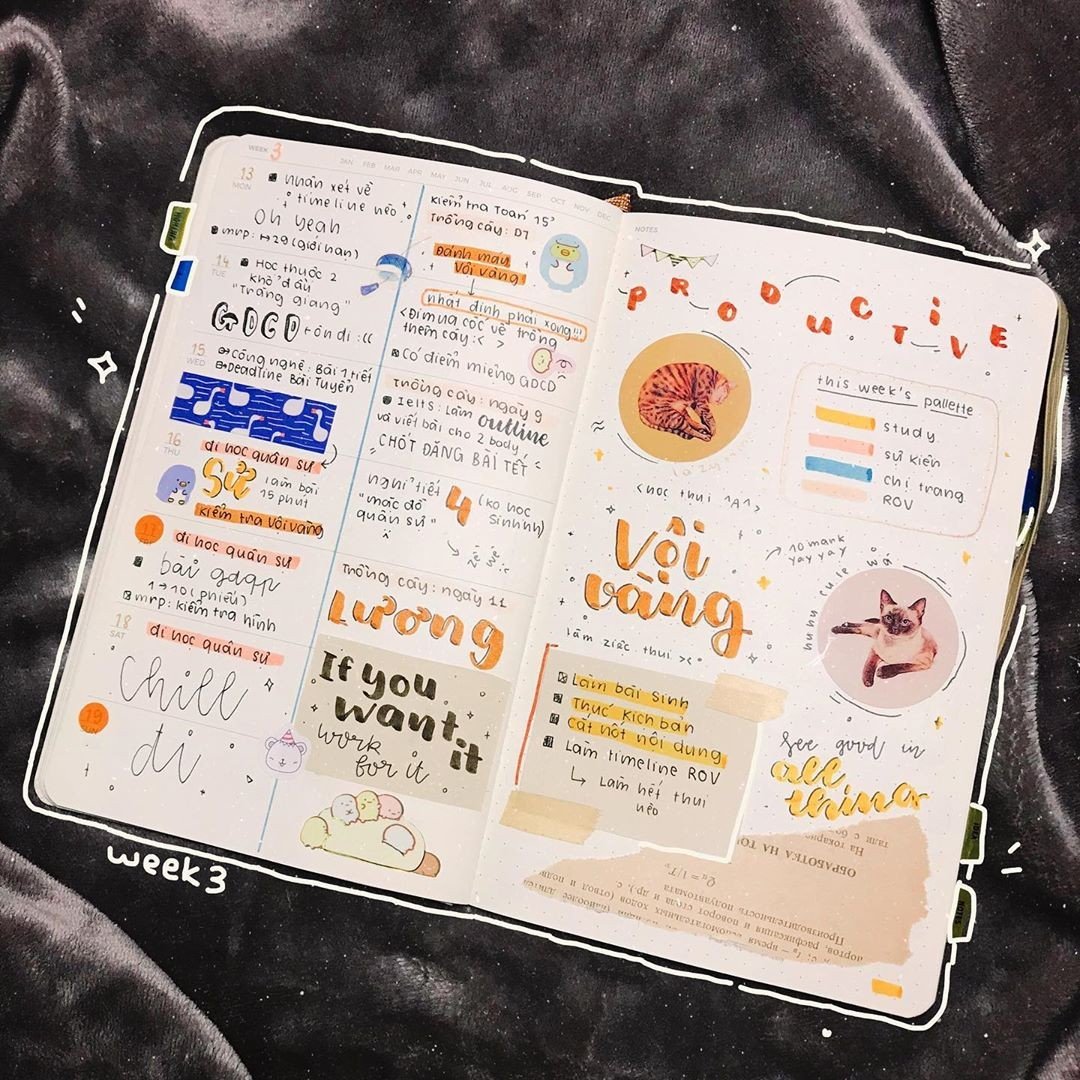 WEEK 3
JAN FEB MAR APR MAY JUN JUL AUG SEP OCT NOV DEC
13
MON
nhận xét về
timeline nèo
oh yeah
mrp: → 29 (giới hạn)
14
TUE
Học thuộc 2
khổ đầu
"Tràng giang"
GDCD + ôn đi :((
15
WED
Công nghệ: Bài 1 tiết
Deadline Bài Tuyển
16
THU
đi học quân sự
Sử làm bài
15 phút
kiểm tra Vội vàng
17
đi học quân sự
bài gdqp
1 → 10 (phiếu)
mrp: kiểm tra hình
18
SAT
đi học quân sự
chill
19
SUN
đi
kiểm tra Toán 15'
Trồng cây: D7
Đánh máy
Vội vàng
nhất định phải xong!!!
<Đi mua cốc về trồng
thêm cây:< >
Có điểm miệng GDCD
Trồng cây: ngày 9
Ielts: Làm outline
và viết bài cho 2 body
CHỐT ĐĂNG BÀI TẾT
nghỉ tiết 4 (ko học
"mặc đồ Sinhhhh)
quân sự"
Trồng cây: ngày 11
Lương
If you
want it
work
for it
week 3
NOTES
PRODUCTIVE
this week's pallette
study
sự kiện
chị trang
ROV
lazy
<học thui ^A^>
Vội
vàng
10 mank
yay yay
huhu cute wá
làm ziệc thui ><
Làm bài sinh
Thuế kịch bản
Cắt nốt nội dung
Làm timeline ROV
↳ Làm hết thui
nèo
See good in
all
things
ОБРАБОТКА НА ТО
На токарно